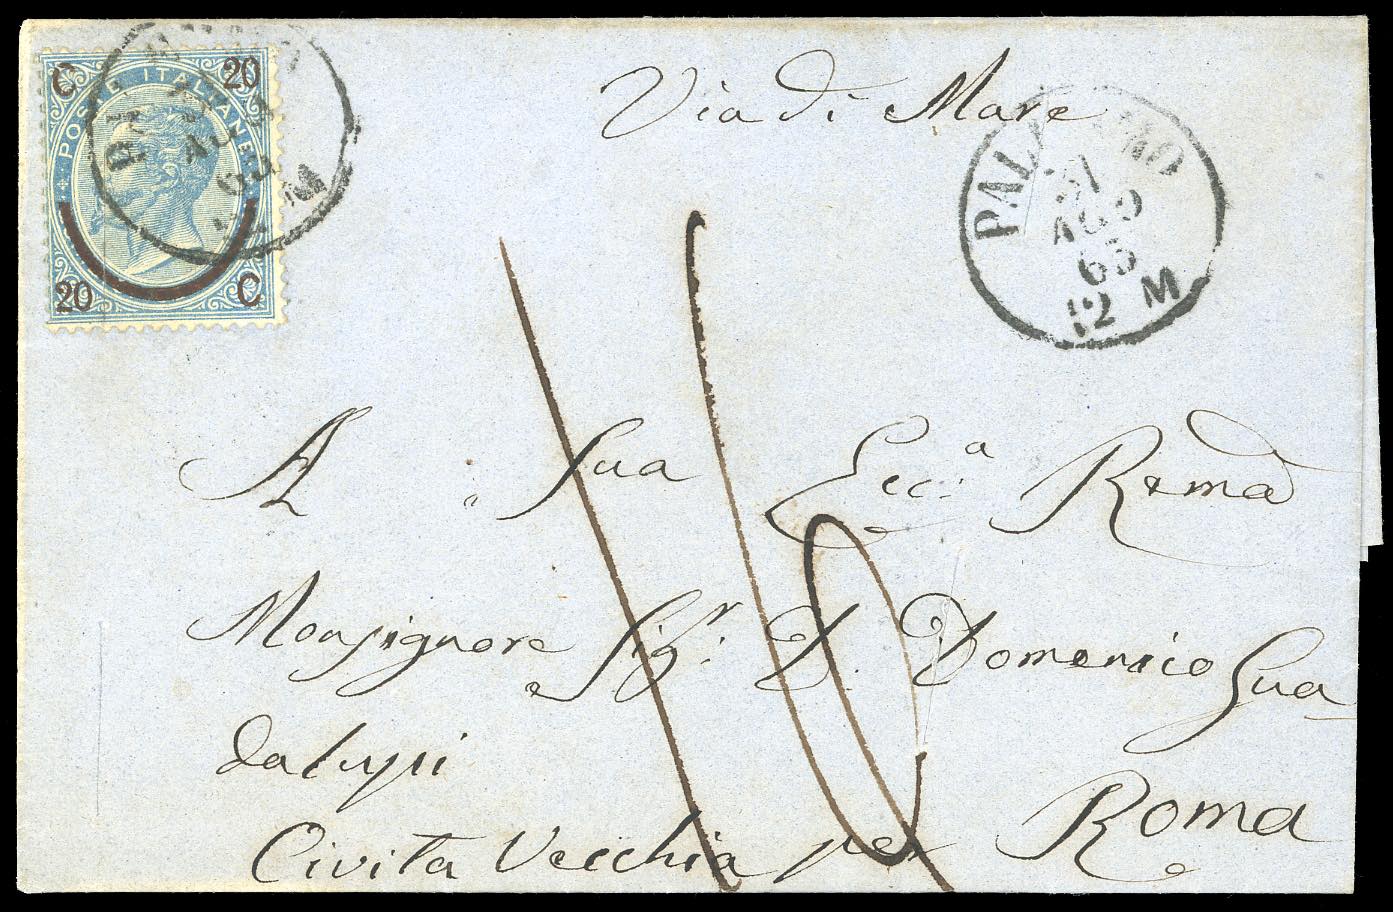 C 20
POSTE ITALIANE
20 C
AGO
65
M
Via di Mare
PALERMO
31
AGO
65
12 M
A Sua Ecc:ª Rema
Monsignore Sigʳ: D. Domenico Gua
dalupi
Civita Vecchia per Roma